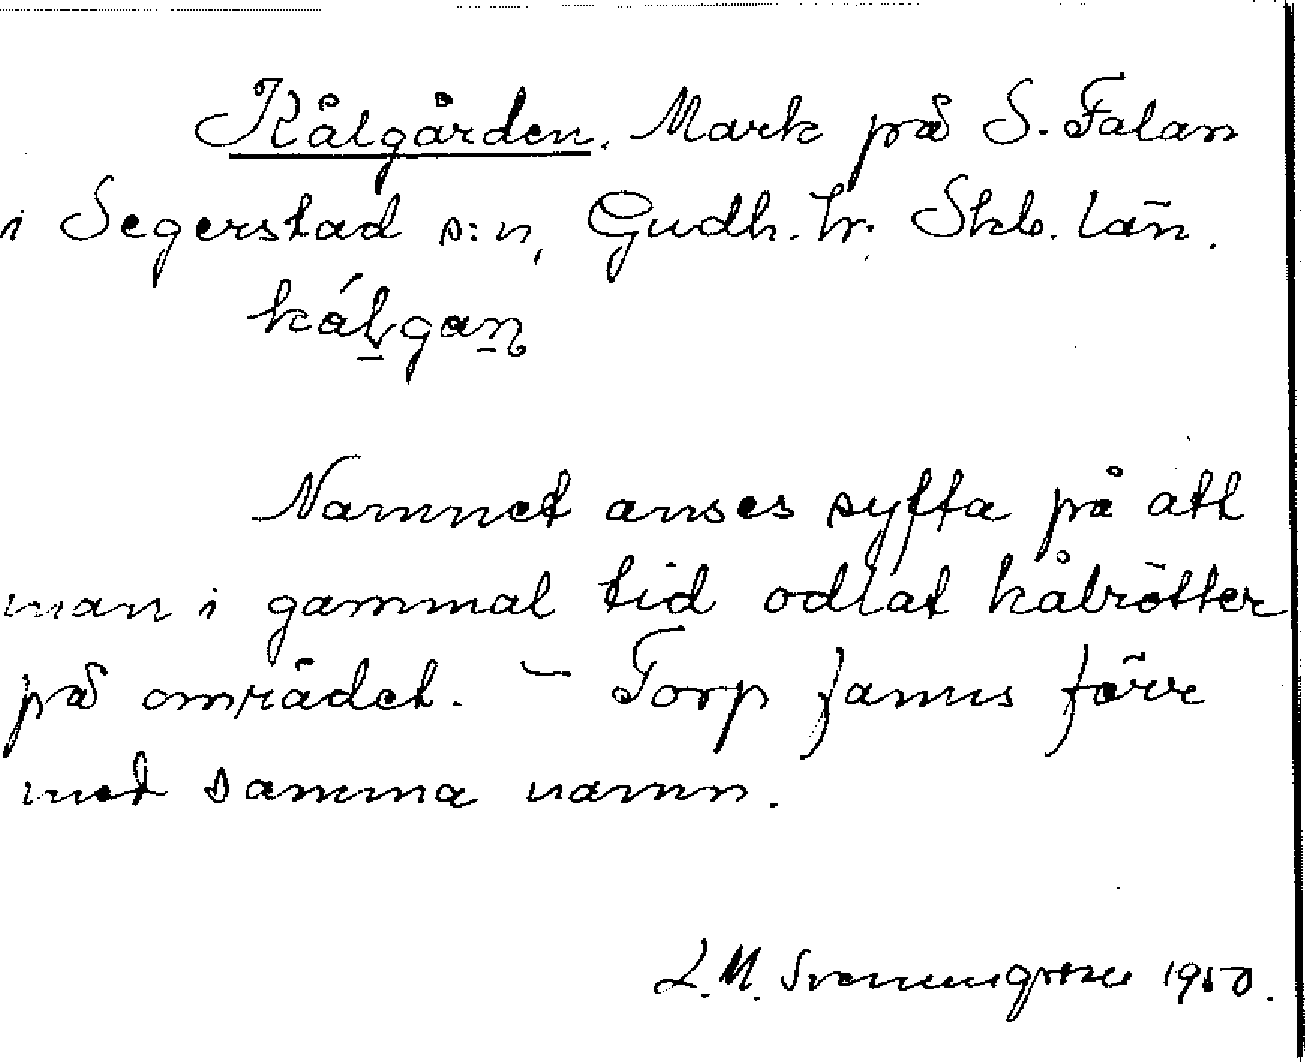 Kålgården. Mark på S. Falan
i Segerstad s:n, Gudh. hr. Skb. län.
kålgan
Namnet anses syfta på att
man i gammal tid odlat kålrötter
på området. – Torp fanns förr
med samma namn.
L. M. Svenungsson 1950.